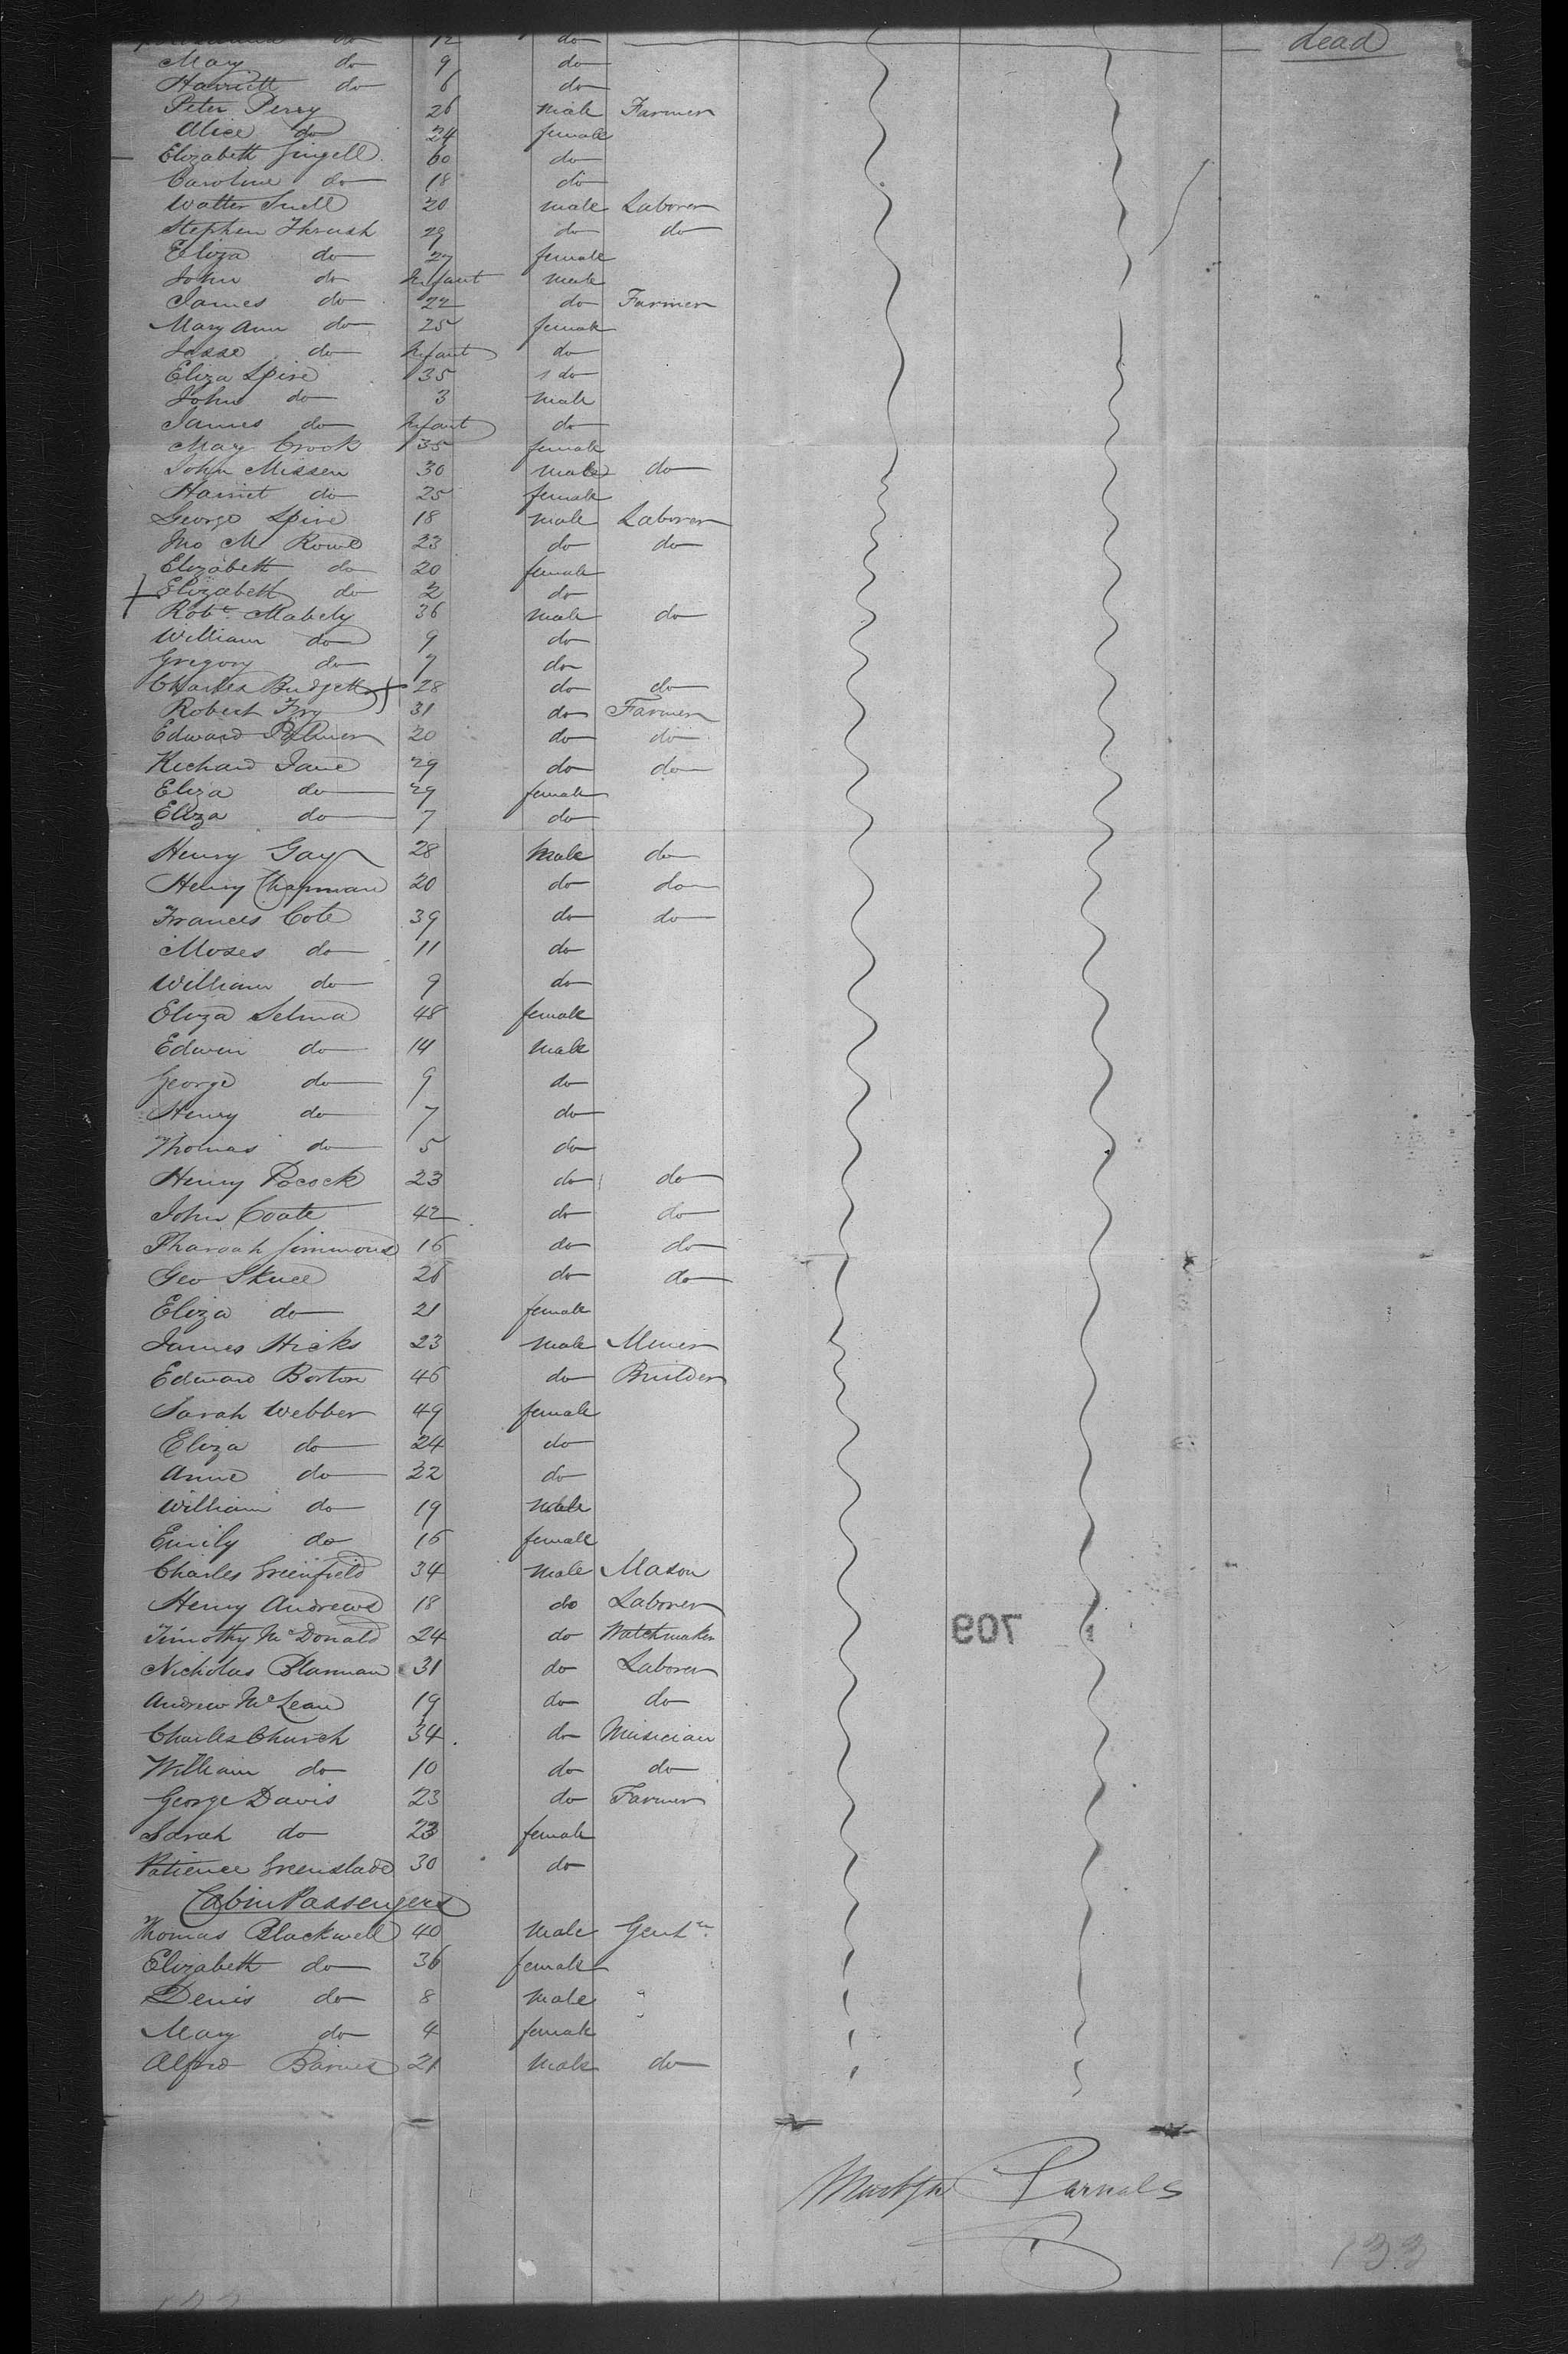 do 12 do dead
Mary do 9 do
Harriett do 6 do
Peter Perry 26 male Farmer
Alice do 24 female
Elizabeth Gingell 60 do
Caroline do 18 do
Walter Snell 20 male Laborer
Stephen Thrush 29 do do
Eliza do 27 female
John do Infant male
James do 22 do Farmer
Mary Ann do 25 female
Jesse do Infant do
Eliza Spire 35 do
John do 3 male
James do Infant do
Mary Crook 35 female
John Missen 30 male do
Harriet do 25 female
George Spire 18 male Laborer
Jno M Rowe 23 do do
Elizabeth do 20 female
Elizabeth do 2 do
Robt. Mabely 36 male do
William do 9 do
Gregory do 7 do
Charles Budgett 28 do do
Robert Fry 31 do Farmer
Edward Palmer 20 do do
Richard Jane 29 do do
Eliza do 29 female
Eliza do 7 do
Henry Gay 28 male do
Henry Chapman 20 do do
Frances Cote 39 do do
Moses do 11 do
William do 9 do
Eliza Selma 48 female
Edwin do 14 male
George do 9 do
Henry do 7 do
Thomas do 5 do
Henry Pocock 23 do do
John Coate 42 do do
Pharoah Simmons 16 do do
Geo Skuce 26 do do
Eliza do 21 female
James Hicks 23 male Miner
Edward Borton 46 do Builder
Sarah Webber 49 female
Eliza do 24 do
Anne do 22 do
William do 19 male
Emily do 16 female
Charles Greenfield 34 male Mason
Henry Andrews 18 do Laborer
Timothy McDonald 24 do Watchmaker
709
Nicholas Blanman 31 do Laborer
Andrew McLean 19 do do
Charles Church 34 do Musician
William do 10 do do
George Davis 23 do Farmer
Sarah do 23 female
Patience Greenslade 30 do
Cabin Passengers
Thomas Blackwell 40 male Gentn.
Elizabeth do 36 female
Denis do 8 male "
Mary do 4 female
Alfred Barnes 21 male do
Parnals
133